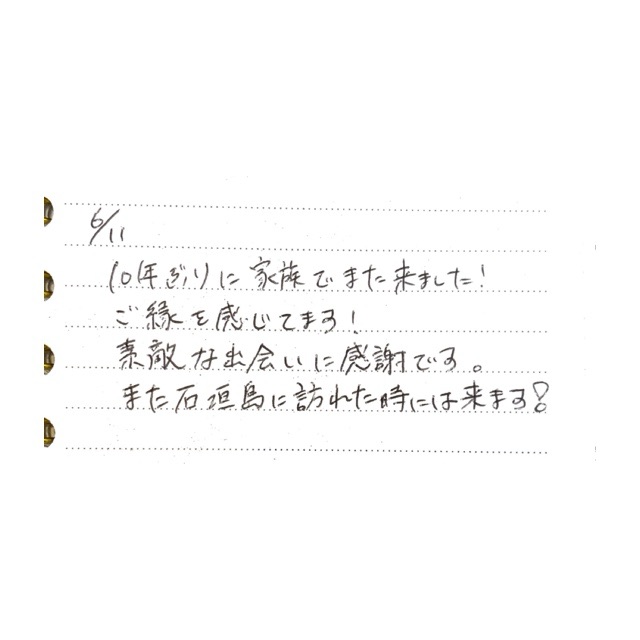 6/11
10年ぶりに家族でまた来ました!
ご縁を感じてます!
素敵な出会いに感謝です。
また石垣島に訪れた時には来ます!